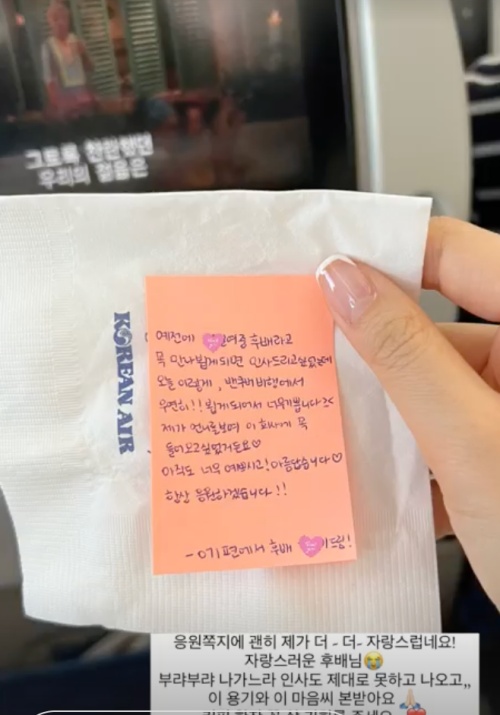 그토록 찬란했던
우리의 걸음은
KOREAN AIR
예전에 여중 후배라고
꼭 만나뵙게되면 인사드리고싶었는데
오늘 이렇게, 밴쿠버비행에서
우연히!! 뵙게되어서 너무기쁩니다><
제가 언니를보며 이 회사에 꼭
들어오고싶었거든요♡
아직도 너무 예쁘시고!아름답습니다♡
항상 응원하겠습니다!!
- 여기편에서 후배 드림!
응원쪽지에 괜히 제가 더 - 더- 자랑스럽네요!
자랑스러운 후배님😭
부랴부랴 나가느라 인사도 제대로 못하고 나오고,,
이 용기와 이 마음씨 본받아요🙏🏻